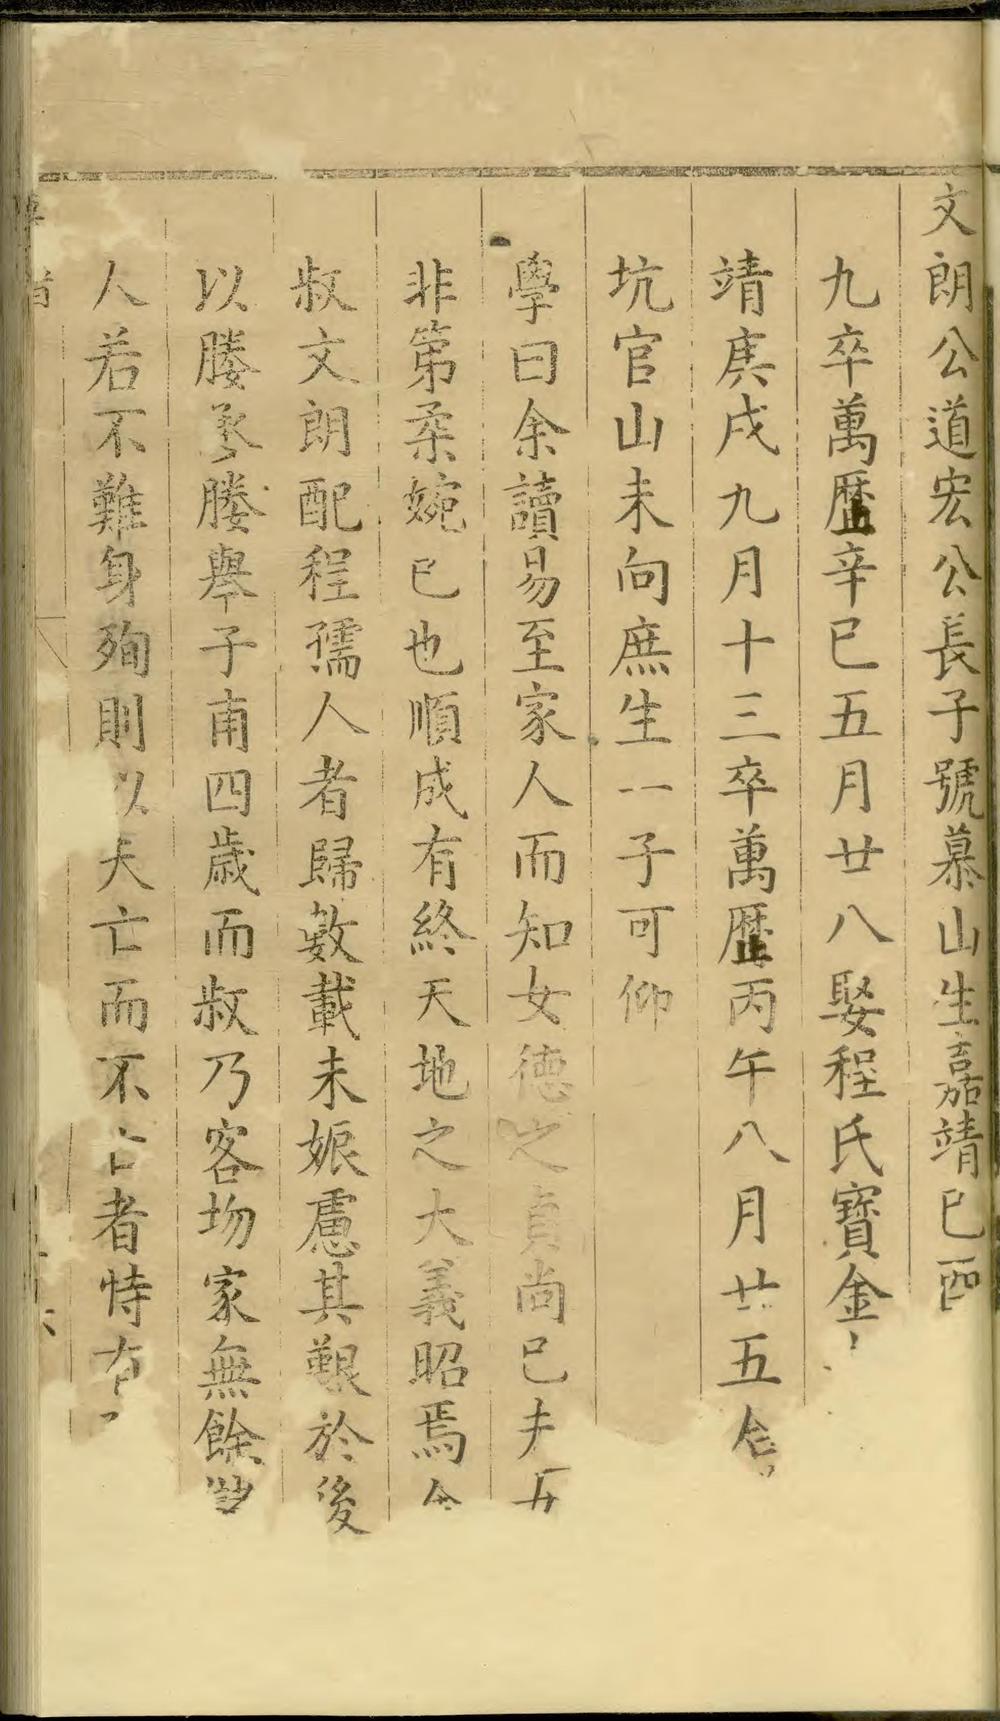 文朗公道宏公長子號慕山生嘉靖己酉
九卒萬歷辛巳五月廿八娶程氏寶金
靖庚戌九月十三卒萬歷丙午八月廿五合
坑官山未向庶生一子可仰
學曰余讀易至家人而知女德之貞尚已夫
非第柔婉已也順成有終天地之大義昭焉
叔文朗配程孺人者歸數載未娠慮其艱於後
以媵烝媵舉子甫四歲而叔乃客坳家無餘
人若不難身殉則以夭亡而不亡者恃有